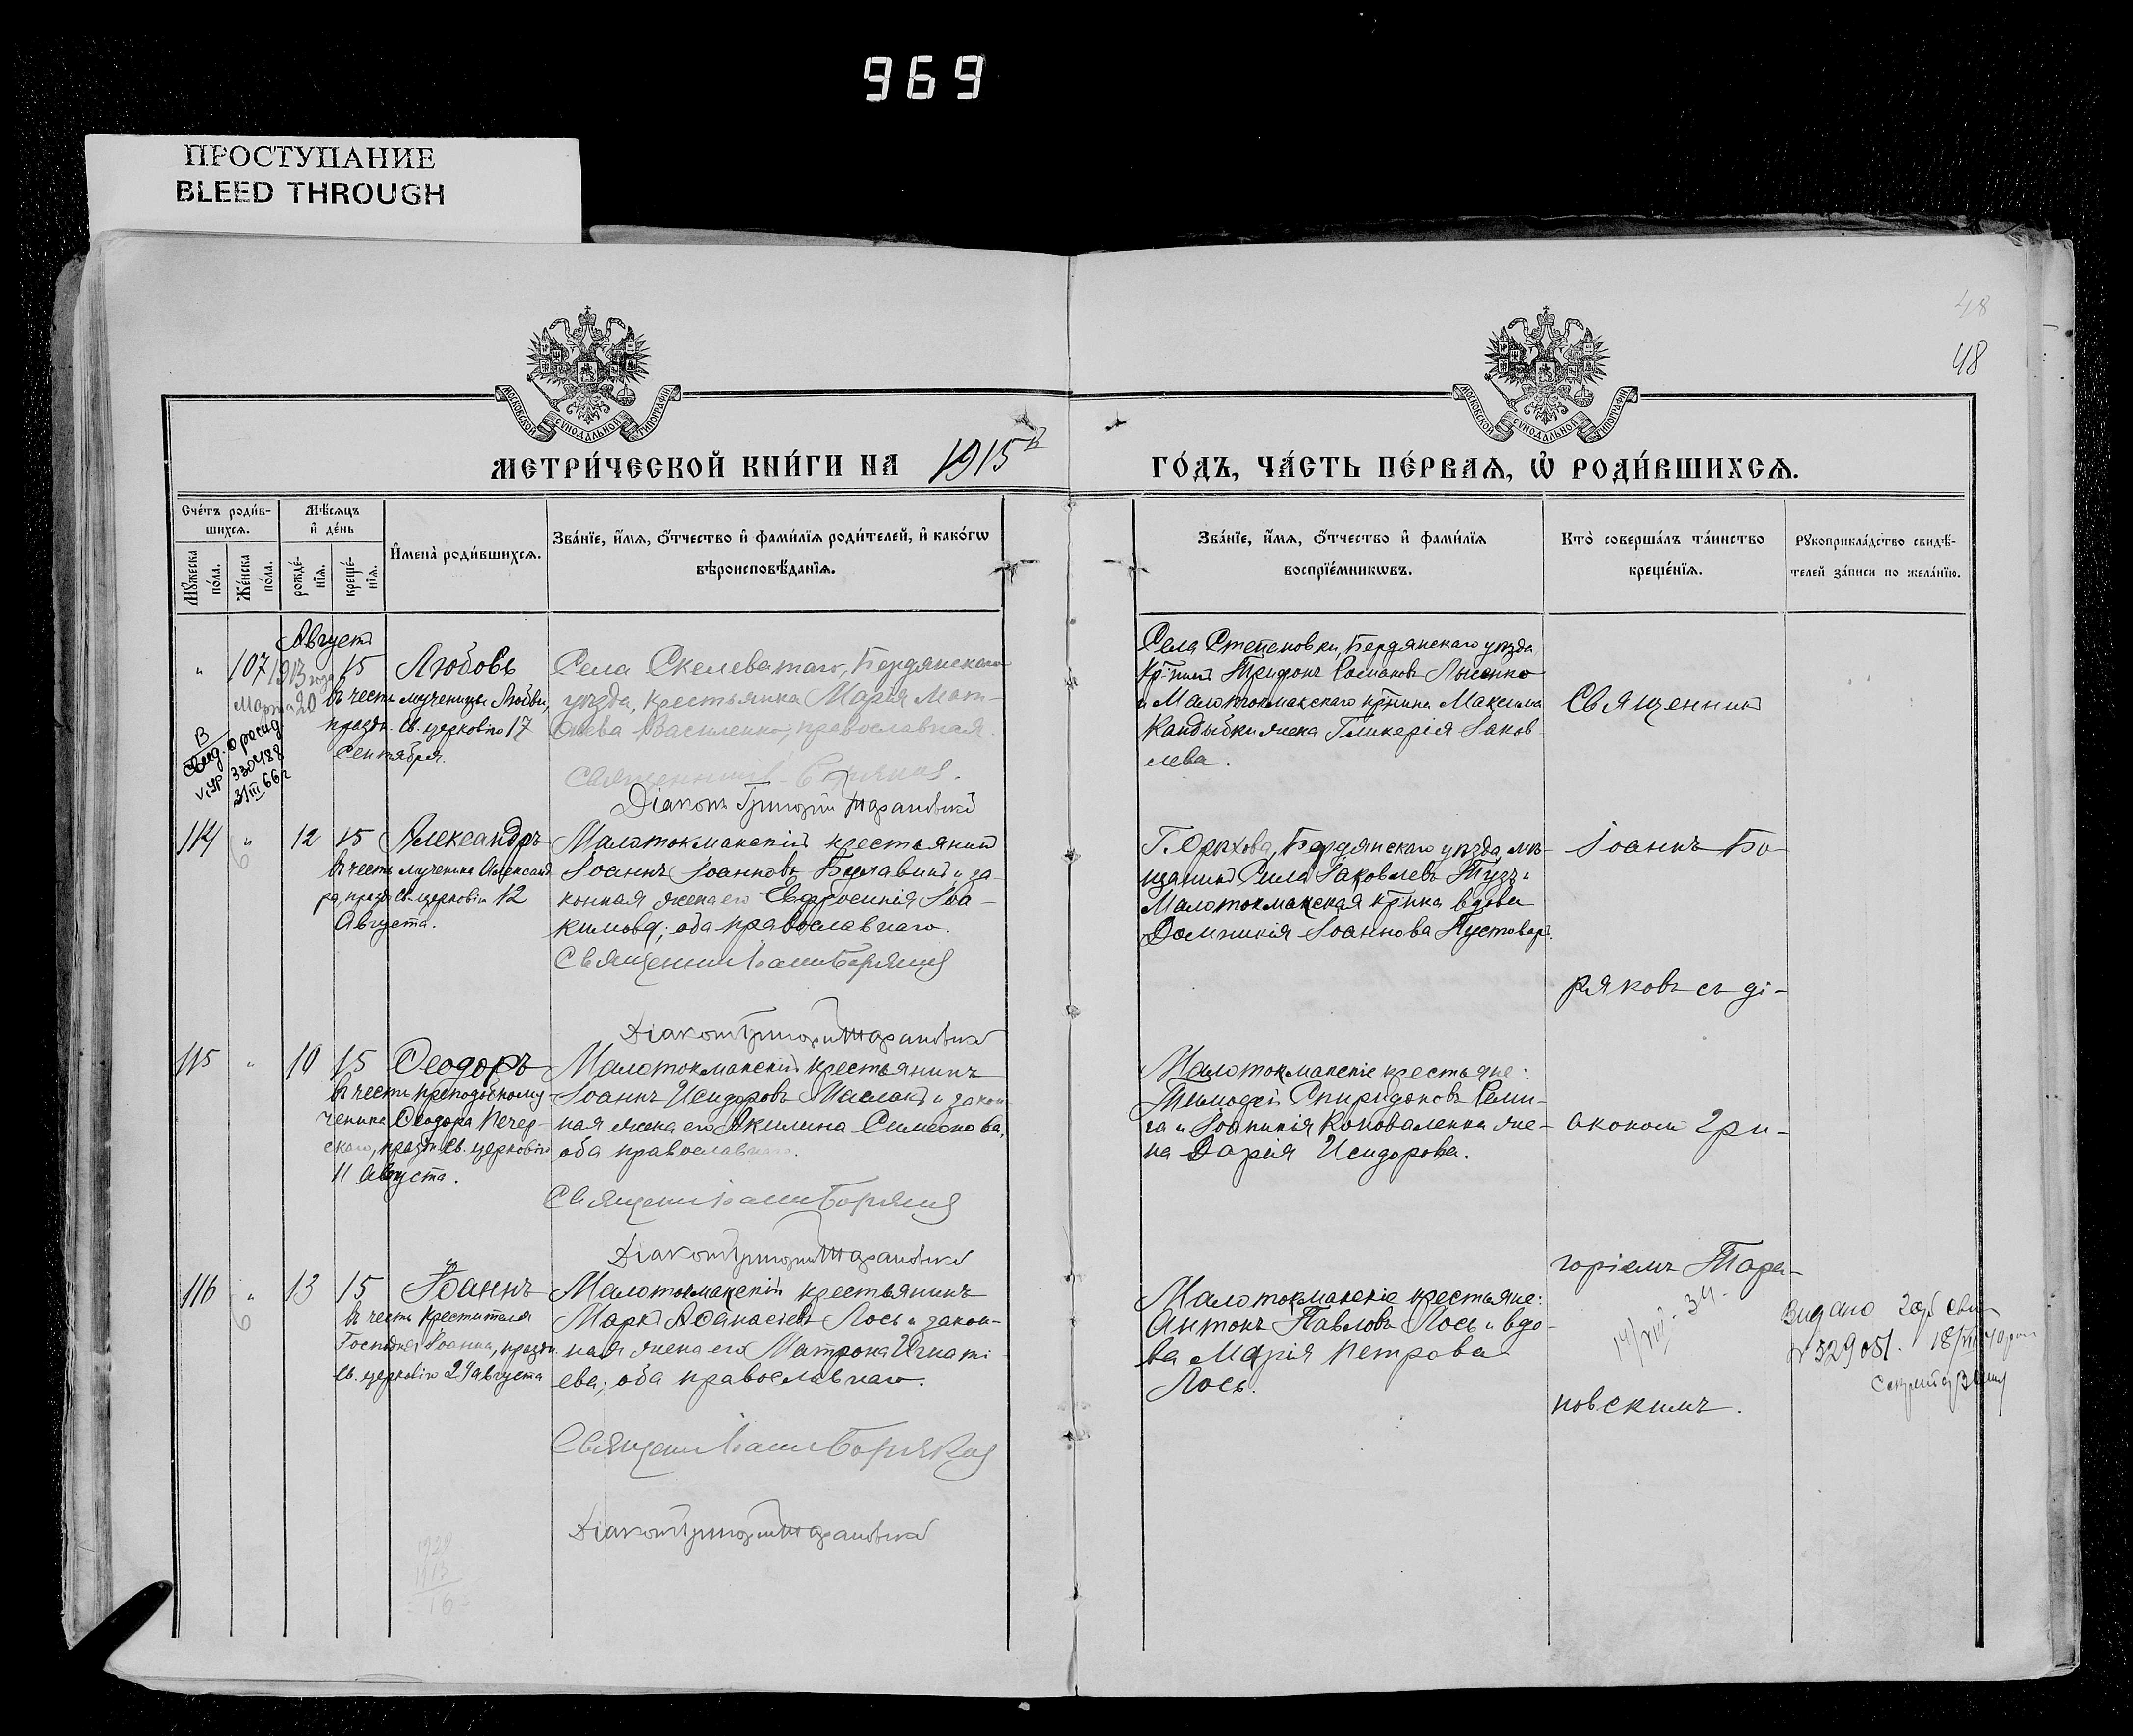 969
ПРОСТУПАНИЕ
BLEED THROUGH
48
48
МОСКОВСКОЙ СУНОДАЛЬНОЙ ТИПОГРАФІИ
МОСКОВСКОЙ СУНОДАЛЬНОЙ ТИПОГРАФІИ
МЕТРИ́ЧЕСКОЙ КНИ́ГИ НА 1915й
ГО́ДЪ, ЧА́СТЬ ПЕ́РВАѦ, Ѡ҆ РОДИ́ВШИХСѦ.
Сче́тъ роди́в-
шихсѧ.
Мꙋ́жеска
по́ла.
Же́нска
по́ла.
Мѣ́сѧцъ
и҆ де́нь
рожде́-
нїѧ.
креще́-
нїѧ.
И҆мена̀ роди́вшихсѧ.
Зва́нїе, и҆́мѧ, ѻ҆́тчество и҆ фами́лїѧ роди́телей, и҆ како́гѡ
вѣроисповѣ́данїѧ.
Зва́нїе, и҆́мѧ, ѻ҆́тчество и҆ фами́лїѧ
воспрїе́мникѡвъ.
Кто̀ соверша́лъ та́инство
креще́нїѧ.
Рꙋкоприкла́дство свидѣ́-
телей за́писи по жела́нїю.
Августъ
" 107 1913 года 15 Любовь
Марта 20 въ честь мученицы Любви,
праздн. Св. церковію 17
Сентября.
В
Свид. о рожд
330488
31 III 66 г
Села Скелеватаго, Бердянскаго
уѣзда, крестьянка Марія Мат-
ѳеева Василенко; православная.
Священникъ
Діаконъ Григорій Тарановскій
Села Степановки, Бердянскаго уѣзда
кр-нинъ Трифонъ Романовъ Лысенко
и Малотокмакскаго кр-нина Максима
Кандыбки жена Гликерія Іаков-
лева.
Священникъ
114 " 12 15 Александръ
6
въ честь мученика Александ
ра, праздн. Св. церковію 12
Августа.
Малотокмакскій крестьянинъ
Іоаннъ Іоанновъ Булавинъ и за-
конная жена его Евфросинія Іоа-
кимова; оба православнаго.
Священникъ Іоаннъ Боряковъ
Діаконъ Григорій Тарановскій
Г. Орѣхова, Бердянскаго уѣзда, мѣ-
щанинъ Сила Іаковлевъ Тузъ и
Малотокмакская кр-нка вдова
Домникія Іоаннова Пустовар.
Іоаннъ Бо-
ряковъ съ ді-
115 " 10 15 Ѳеодоръ
въ честь преподобному-
ченика Ѳеодора Печер-
скаго, праздн. Св. церковію
11 Августа.
Малотокмакскій крестьянинъ
Іоаннъ Исидоровъ Масланъ и закон
ная жена его Акилина Симеонова,
оба православнаго.
Священникъ Іоаннъ Боряковъ
Діаконъ Григорій Тарановскій
Малотокмакскіе крестьяне:
Тимоѳей Спиридоновъ
и Іоанникія Коноваленка же-
на Дарія Исидорова.
акономъ Гри-
горіемъ Тара-
116 " 13 15 Іоаннъ
6
въ честь Крестителя
Господня Іоанна, праздн.
Св. церковію 29 августа
Малотокмакскій крестьянинъ
Маркъ Аѳанасіевъ Лось и закон-
ная жена его Матрона Игнаті-
ева; оба православнаго.
Священникъ Іоаннъ Боряковъ
Діаконъ Григорій Тарановскій
Малотокмакскіе крестьяне:
Антонъ Павловъ Лось и вдо-
ва Марія Петрова
Лось.
14/VIII - 34.
новскимъ.
Видано
№ 329051. 18/VII 40
1929
1913
16